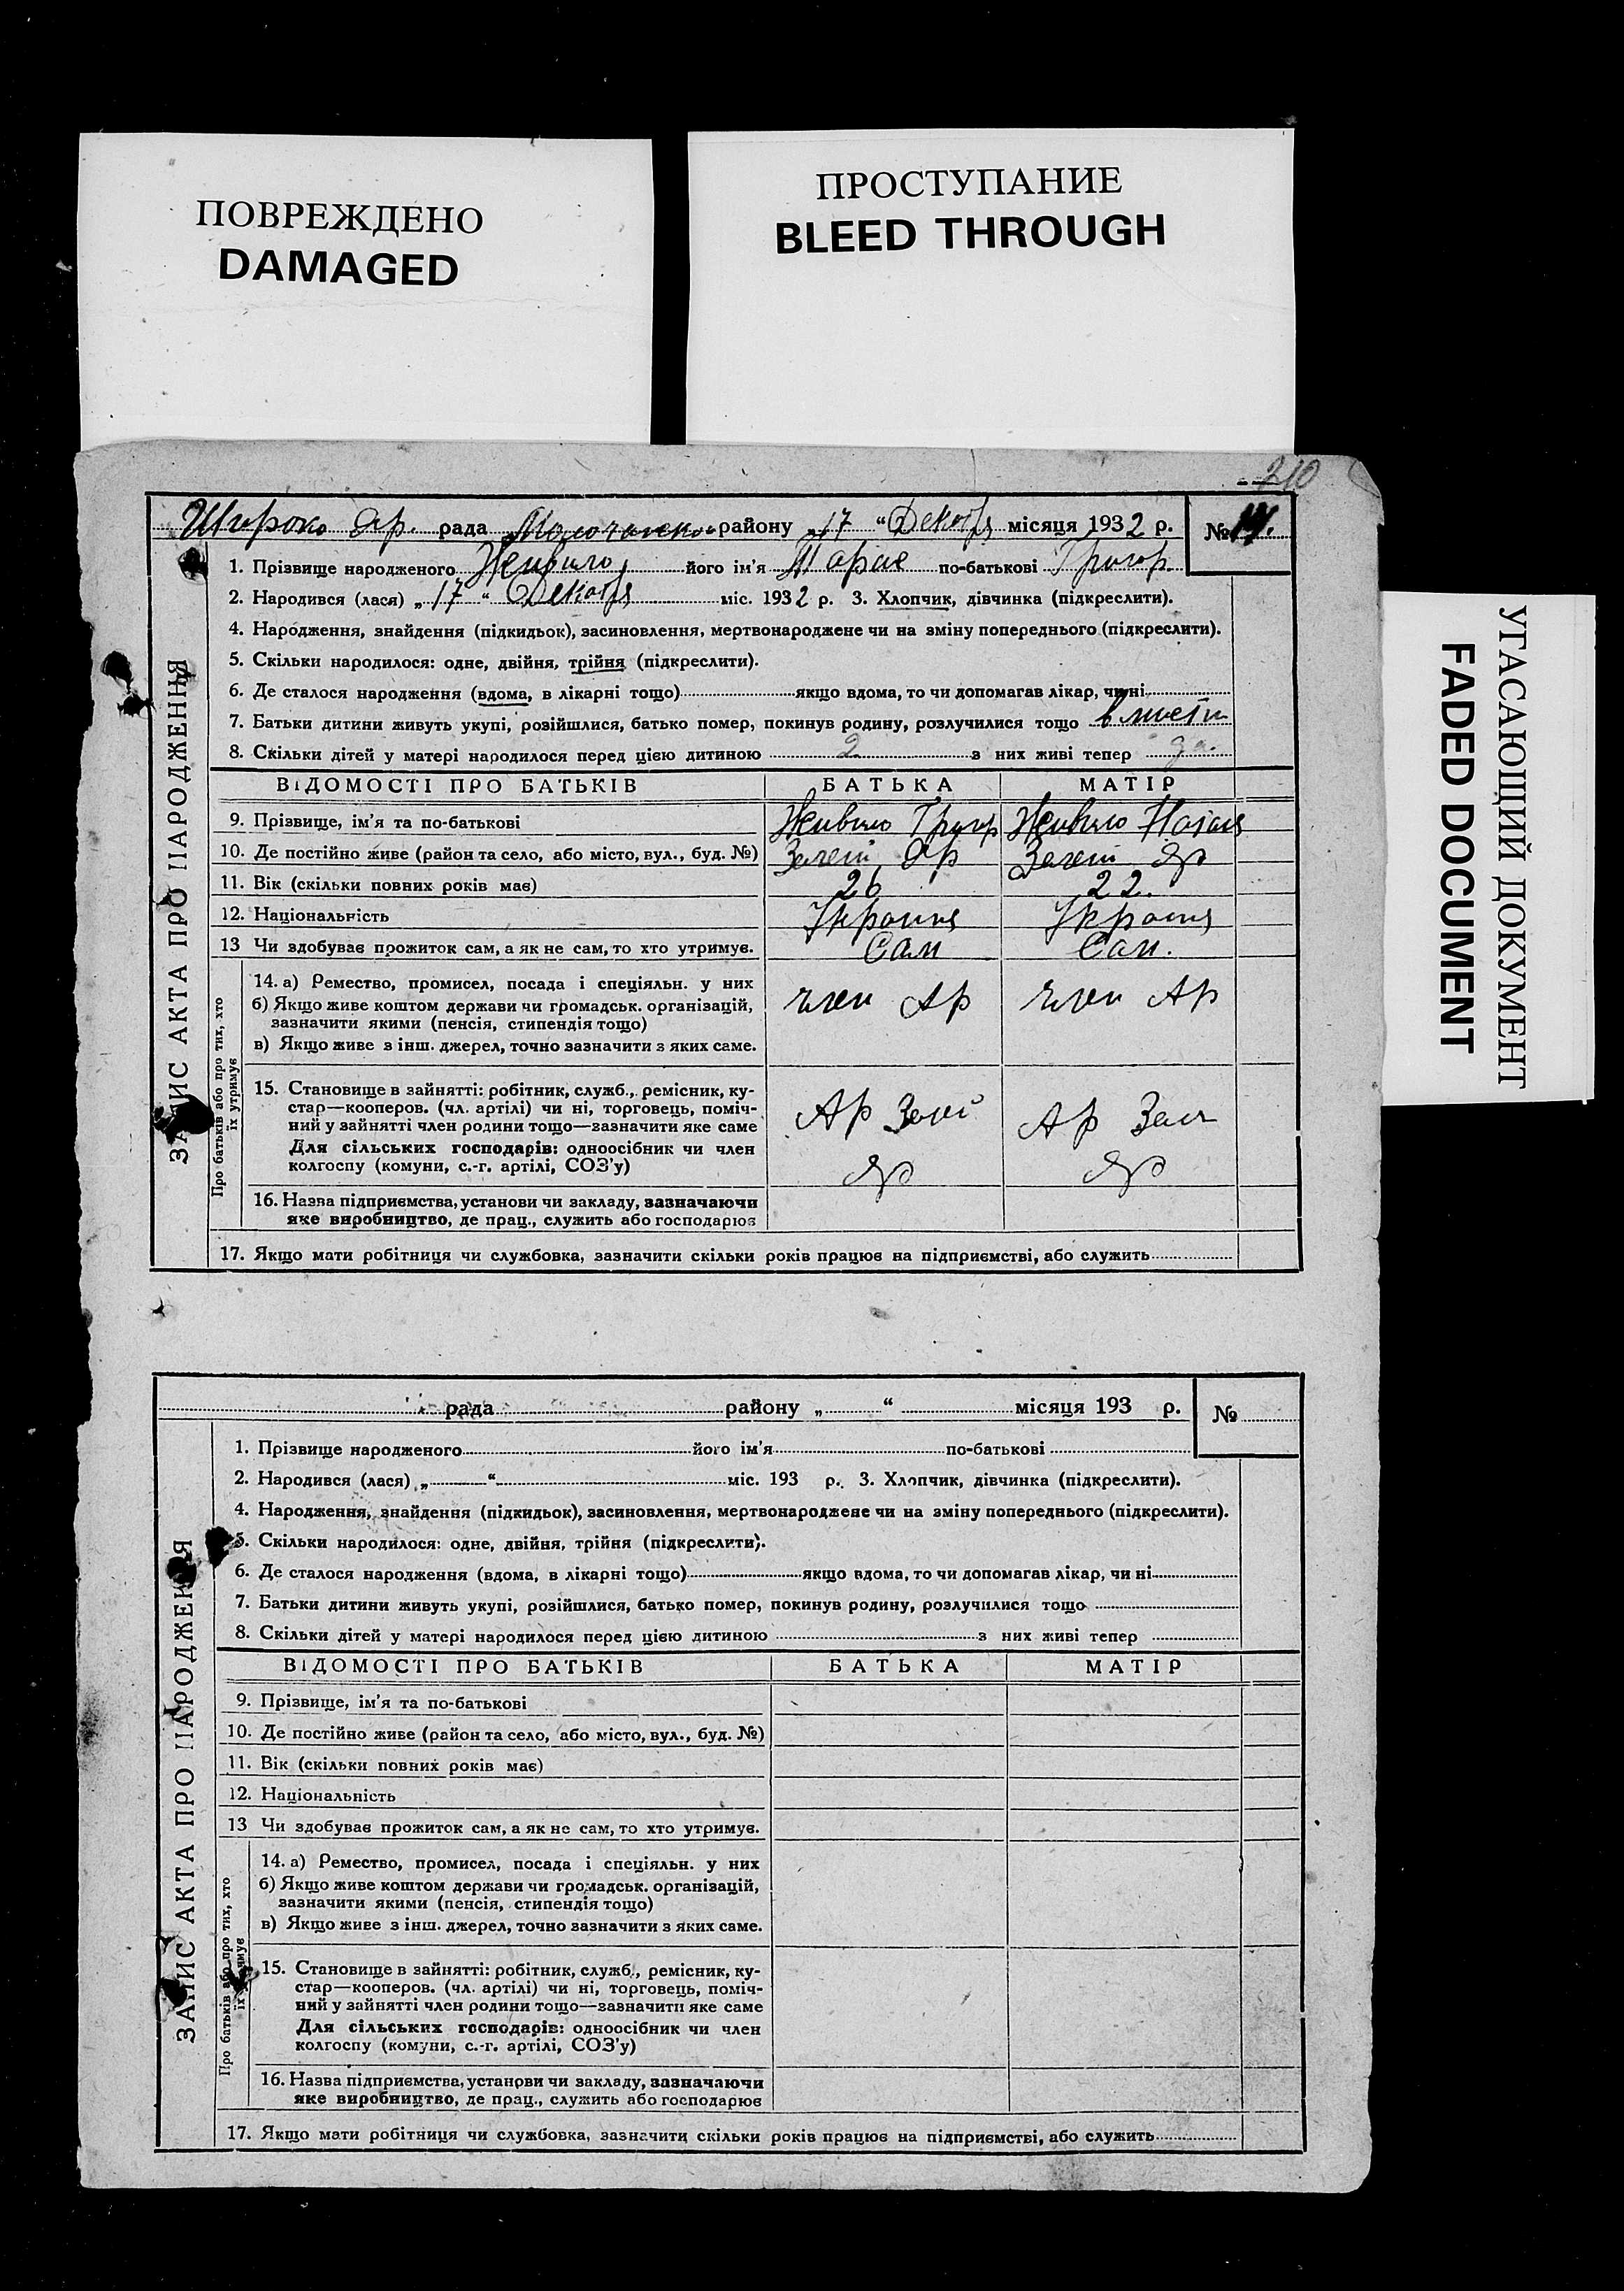 ПОВРЕЖДЕНО
DAMAGED
ПРОСТУПАНИЕ
BLEED THROUGH
УГАСАЮЩИЙ ДОКУМЕНТ
FADED DOCUMENT
210
Широко Яр. рада Молочанско району „17 “ Декабря місяця 1932 р. №
1. Прізвище народженого Живило його ім'я Тарас по-батькові Григор.
2. Народився (лася) „17 “ Декабря міс. 1932 р. 3. Хлопчик, дівчинка (підкреслити).
4. Народження, знайдення (підкидьок), засиновлення, мертвонароджене чи на зміну попереднього (підкреслити).
5. Скільки народилося: одне, двійня, трійня (підкреслити).
6. Де сталося народження (вдома, в лікарні тощо) якщо вдома, то чи допомагав лікар, чи ні
7. Батьки дитини живуть укупі, розійшлися, батько помер, покинув родину, розлучилися тощо вмісти
8. Скільки дітей у матері народилося перед цією дитиною 2 з них живі тепер да.
ЗАПИС АКТА ПРО НАРОДЖЕННЯ
ВІДОМОСТІ ПРО БАТЬКІВ БАТЬКА МАТІР
9. Прізвище, ім'я та по-батькові Живило Григор Живило Наталя
10. Де постійно живе (район та село, або місто, вул., буд. №) Зелений Яр Зелений Яр
11. Вік (скільки повних років має) 26 22.
12. Національність Украинця Украинця
13 Чи здобував прожиток сам, а як не сам, то хто утримує. Сам Сам.
Про батьків або про тих, хто
їх утримує
14. а) Ремество, промисел, посада і спеціяльн. у них
б) Якщо живе коштом держави чи громадськ. організацій,
зазначити якими (пенсія, стипендія тощо)
член Ар член Ар
в) Якщо живе з інш. джерел, точно зазначити з яких саме.
15. Становище в зайнятті: робітник, служб., ремісник, ку-
стар—кооперов. (чл. артілі) чи ні, торговець, поміч-
ний у зайнятті член родини тощо—зазначити яке саме
Ар Зелй Ар Зелн
Для сільських господарів: одноосібник чи член
колгоспу (комуни, с.-г. артілі, СОЗ'у)
Яр Яр
16. Назва підприємства, установи чи закладу, зазначаючи
яке виробництво, де прац., служить або господарює
17. Якщо мати робітниця чи службовка, зазначити скільки років працює на підприємстві, або служить
рада району „ “ місяця 193 р. №
1. Прізвище народженого його ім'я по-батькові
2. Народився (лася) „ “ міс. 193 р. 3. Хлопчик, дівчинка (підкреслити).
4. Народження, знайдення (підкидьок), засиновлення, мертвонароджене чи на зміну попереднього (підкреслити).
5. Скільки народилося: одне, двійня, трійня (підкреслити).
6. Де сталося народження (вдома, в лікарні тощо) якщо вдома, то чи допомагав лікар, чи ні
7. Батьки дитини живуть укупі, розійшлися, батько помер, покинув родину, розлучилися тощо
8. Скільки дітей у матері народилося перед цією дитиною з них живі тепер
ЗАПИС АКТА ПРО НАРОДЖЕННЯ
ВІДОМОСТІ ПРО БАТЬКІВ БАТЬКА МАТІР
9. Прізвище, ім'я та по-батькові
10. Де постійно живе (район та село, або місто, вул., буд. №)
11. Вік (скільки повних років має)
12. Національність
13 Чи здобував прожиток сам, а як не сам, то хто утримує.
Про батьків або про тих, хто
їх утримує
14. а) Ремество, промисел, посада і спеціяльн. у них
б) Якщо живе коштом держави чи громадськ. організацій,
зазначити якими (пенсія, стипендія тощо)
в) Якщо живе з інш. джерел, точно зазначити з яких саме.
15. Становище в зайнятті: робітник, служб., ремісник, ку-
стар—кооперов. (чл. артілі) чи ні, торговець, поміч-
ний у зайнятті член родини тощо—зазначити яке саме
Для сільських господарів: одноосібник чи член
колгоспу (комуни, с.-г. артілі, СОЗ'у)
16. Назва підприємства, установи чи закладу, зазначаючи
яке виробництво, де прац., служить або господарює
17. Якщо мати робітниця чи службовка, зазначити скільки років працює на підприємстві, або служить